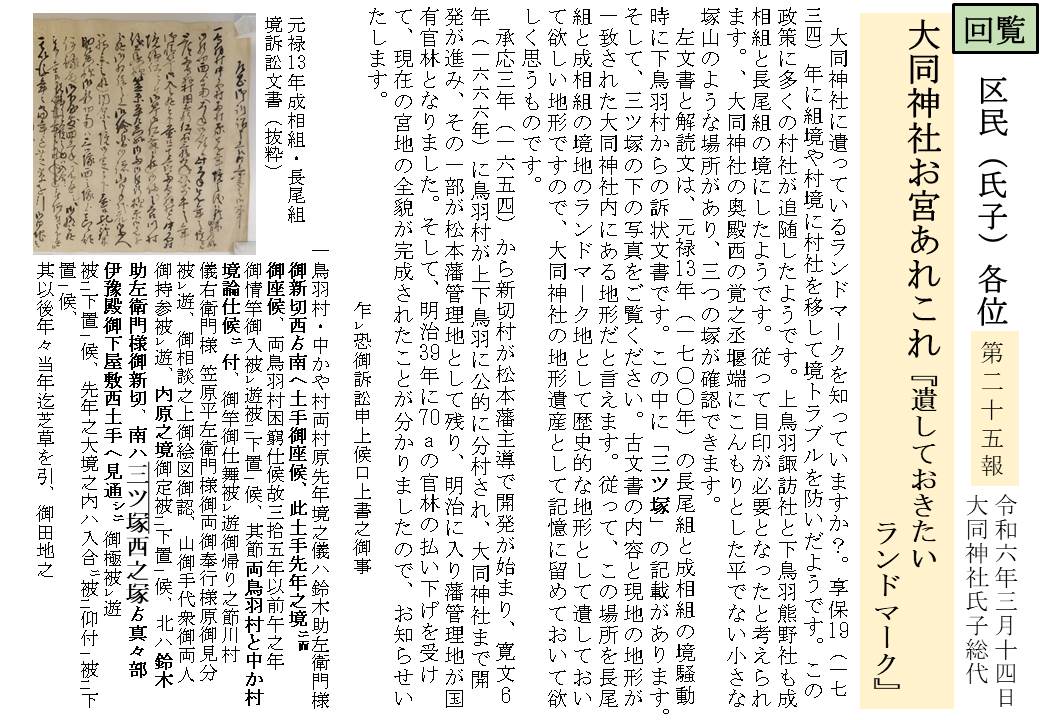 回覧
区民（氏子）各位
第二十五報
令和六年三月十四日
大同神社氏子総代
大同神社お宮あれこれ『遺しておきたい
ランドマーク』
大同神社に遺っているランドマークを知っていますか？。享保19（一七
三四）年に組境や村境に村社を移して境トラブルを防いだようです。この
政策に多くの村社が追随したようです。上鳥羽諏訪社と下鳥羽熊野社も成
相組と長尾組の境にしたようです。従って目印が必要となったと考えられ
ます。、大同神社の奥殿西の覚之丞堰端にこんもりとした平でない小さな
塚山のような場所があり、三つの塚が確認できます。
左文書と解読文は、元禄13年（一七〇〇年）の長尾組と成相組の境騒動
時に下鳥羽村からの訴状文書です。この中に「三ツ塚」の記載があります。
そして、三ツ塚の下の写真をご覧ください。古文書の内容と現地の地形が
一致された大同神社内にある地形だと言えます。従って、この場所を長尾
組と成相組の境地のランドマーク地として歴史的な地形として遺しておい
て欲しい地形ですので、大同神社の地形遺産として記憶に留めておいて欲
しく思うものです。
承応三年（一六五四）から新切村が松本藩主導で開発が始まり、寛文6
年（一六六六年）に鳥羽村が上下鳥羽に公的に分村され、大同神社まで開
発が進み、その一部が松本藩管理地として残り、明治に入り藩管理地が国
有官林となりました。そして、明治39年に70aの官林の払い下げを受け
て、現在の宮地の全貌が完成されたことが分かりましたので、お知らせい
たします。
元禄13年成相組・長尾組
境訴訟文書（抜粋）
乍レ恐御訴訟申上候口上書之御事
一 鳥羽村・中かや村両村原先年境之儀ハ鈴木助左衛門様
御新切西ゟ南へ土手御座候、此土手先年之境ニ而
御座候、両鳥羽村困窮仕候故三拾五年以前午之年
御情竿御入被レ遊被二下置一候、其節両鳥羽村と中かや村
境論仕候ニ付、御竿御仕舞被レ遊御帰り之節川村
儀右衛門様 笠原平左衛門様御両御奉行様原御見分
被レ遊、御相談之上御絵図御認、山御手代衆御両人
御持参被レ遊、内原之境御定被二下置一候、北ハ鈴木
助左衛門様御新切、南ハ三ツ塚西之塚ゟ真々部
伊豫殿御下屋敷西土手へ見通シニ御極被レ遊
被二下置一候、先年之大境之内ハ入合ニ被二仰付一被二下
置一候、
其以後年々当年迄芝草を引、御田地之